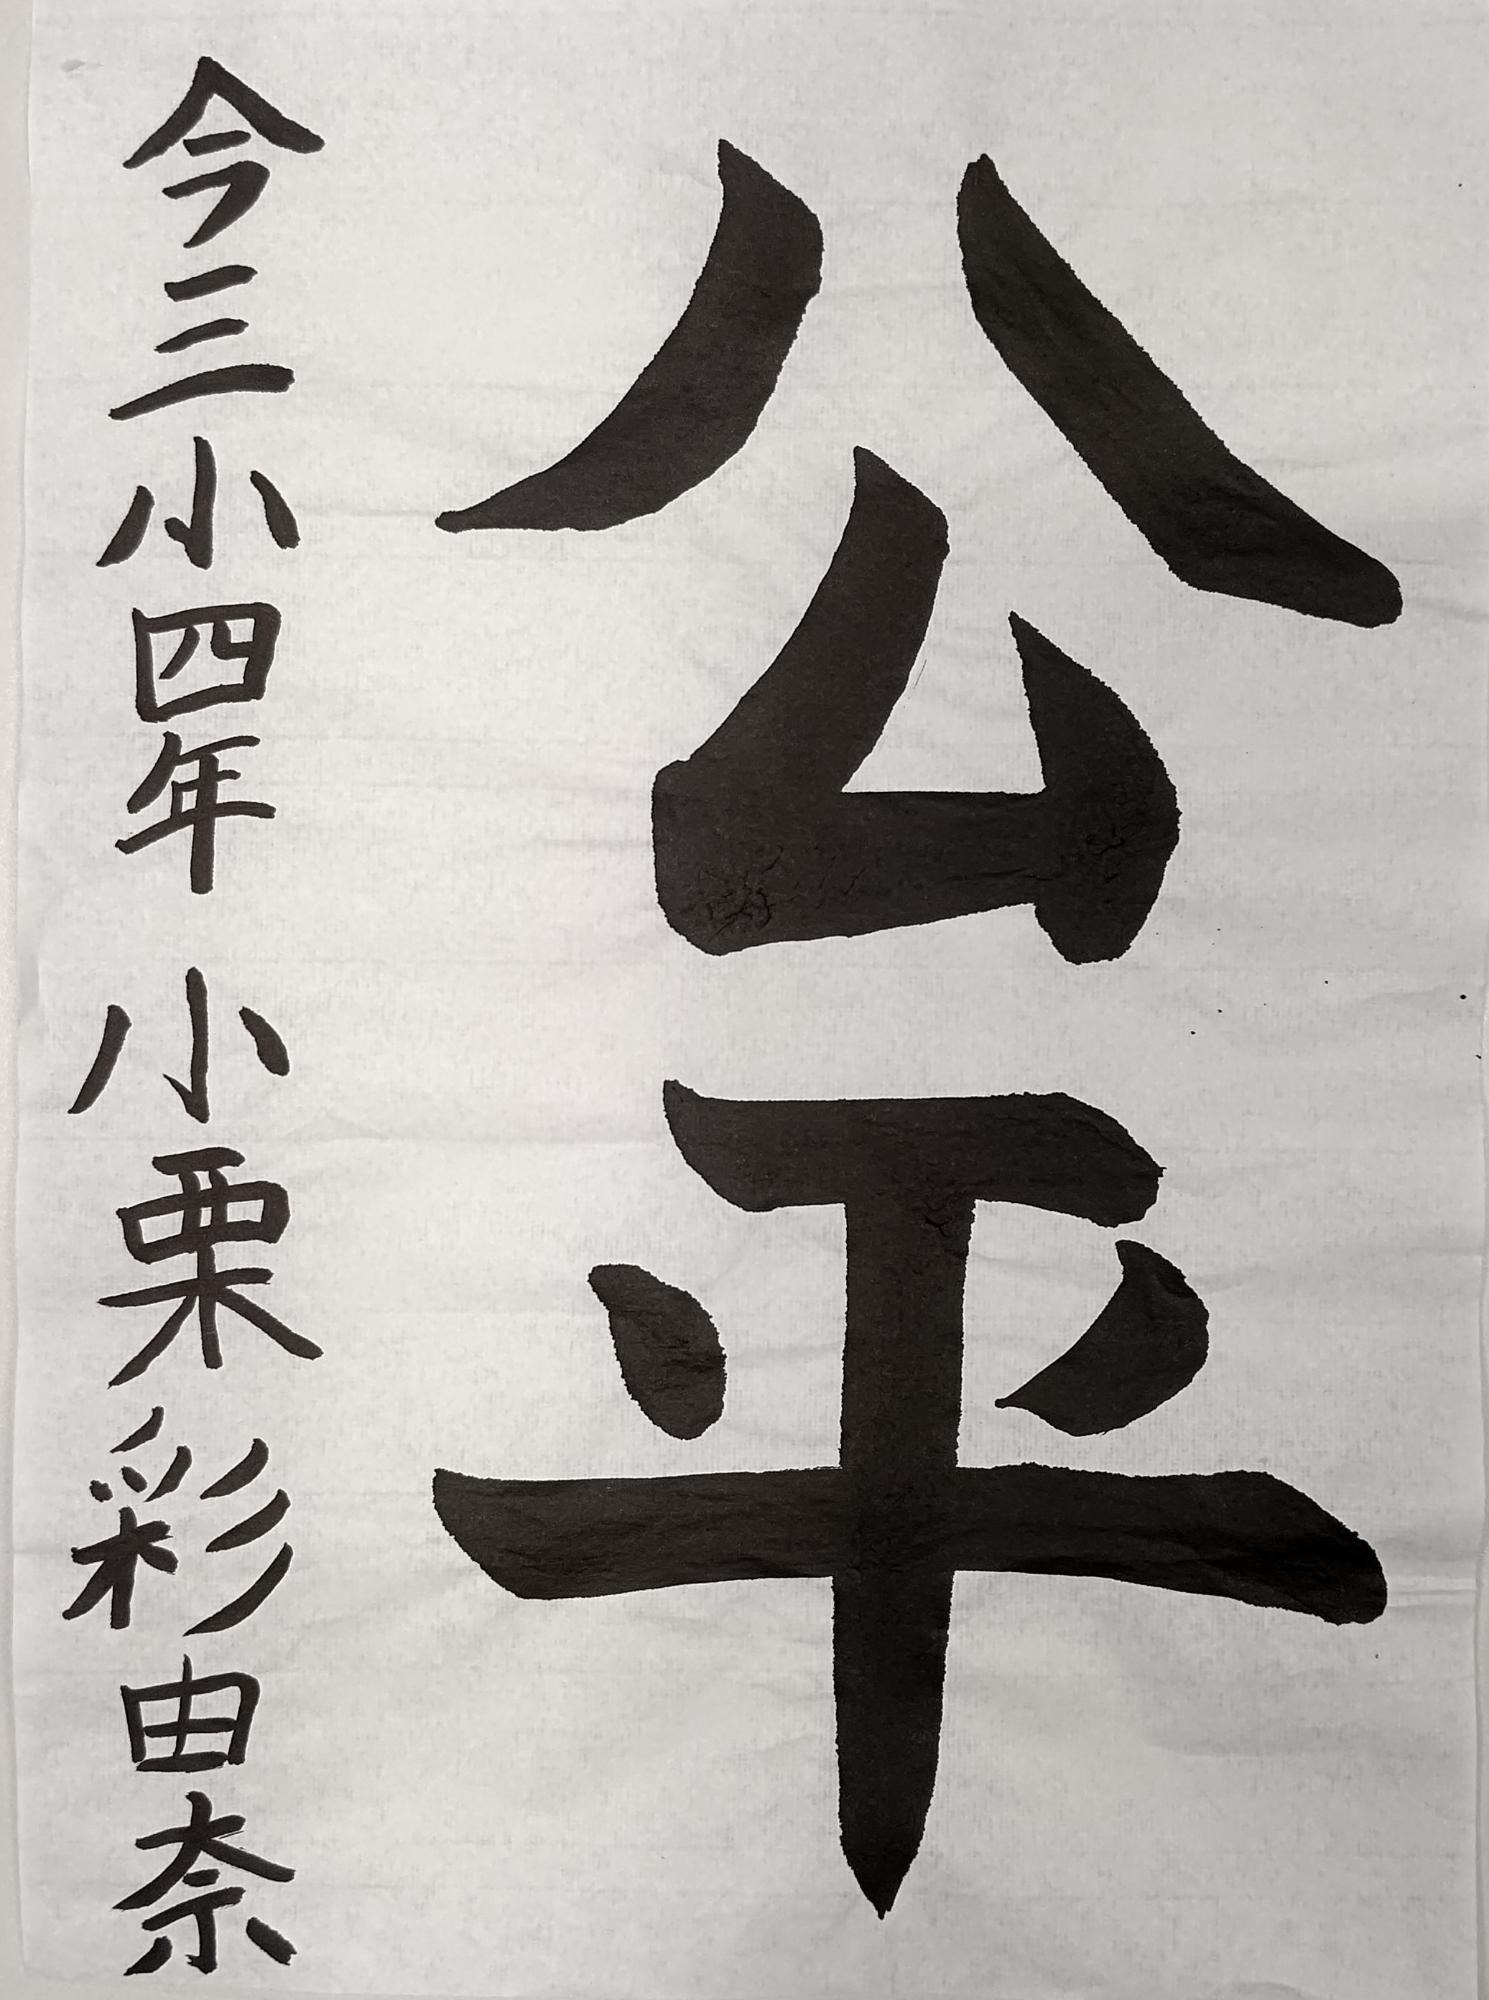 公平
今三小四年 小栗彩由奈